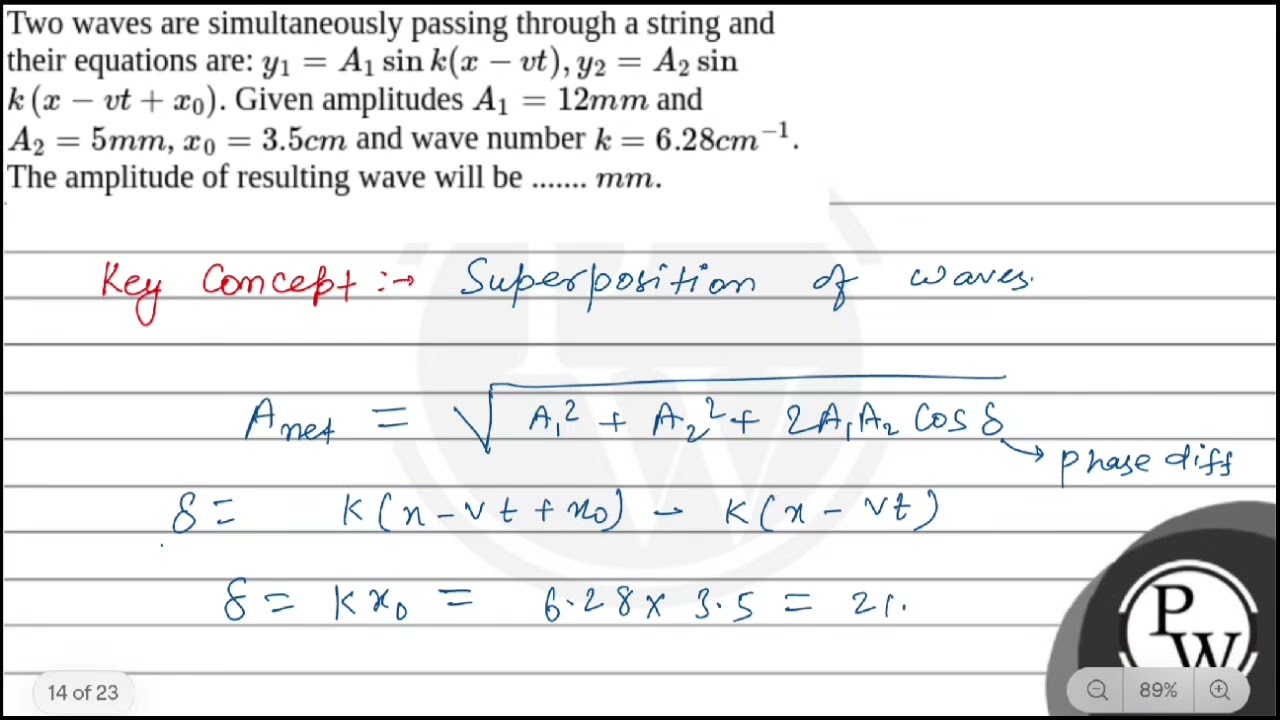 Two waves are simultaneously passing through a string and
their equations are: y₁ = A₁ sin k(x − vt), y₂ = A₂ sin
k (x − vt + x₀). Given amplitudes A₁ = 12mm and
A₂ = 5mm, x₀ = 3.5cm and wave number k = 6.28cm⁻¹.
The amplitude of resulting wave will be ....... mm.
Key Concept :→ Superposition of waves.
A net = √(A₁² + A₂² + 2A₁A₂ Cos δ)
→ phase diff
δ = K(x − vt + x₀) − K(x − vt)
δ = K x₀ = 6.28 × 3.5 = 21.
PW
14 of 23
89%